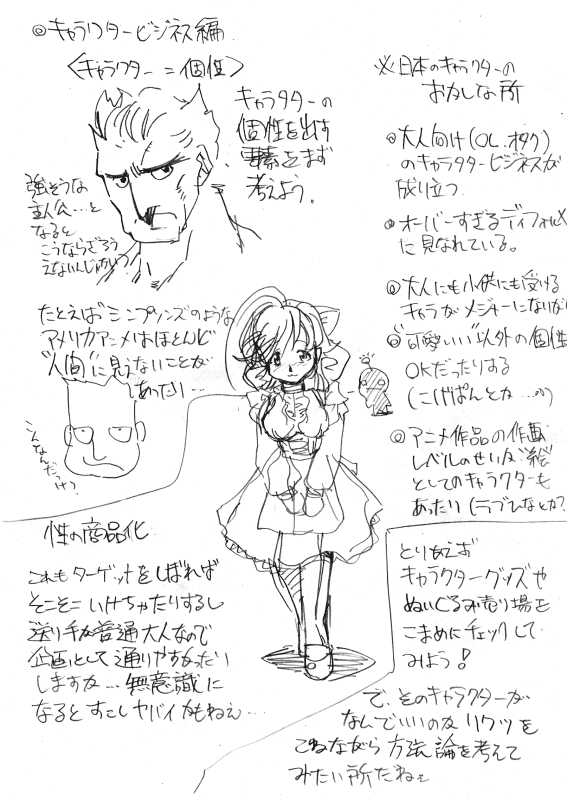 ◎キャラクタービジネス編
〈キャラクター＝個性〉
キャラクターの
個性を出す
要素をまず
考えよう。
強そうな
主人公…と
なると
こうならざろう
えないんじゃない?
たとえばシンプソンズのような
アメリカアニメはほとんど
"人間"に見えないことが
あったり…
こんなんだっけ?
※日本のキャラクターの
おかしな所
◎大人向け(OL、オタク)
のキャラクタービジネスが
成り立つ
◎オーバーすぎるディフォルメ
に見なれている。
◎大人にも小供にも受ける
キャラがメジャーにないが
◎"可愛いい"以外の個性
OKだったりする
(こげぱんとか…か)
◎アニメ作品の作画
レベルのせいか"絵"
としてのキャラクターも
あったり(ラブひなとか?
性の商品化
これもターゲットをしぼれば
そこそこいけちゃたりするし
送り手が普通大人なので
企画として通りやすかったり
しますが…無意識に
なるとすこしヤバイかもねぇ…
とりあえず
キャラクターグッズや
ぬいぐるみ売り場を
こまめにチェックして
みよう!
で、そのキャラクターが
なんでいいのかリクツを
こねながら方法論を考えて
みたい所だねぇ